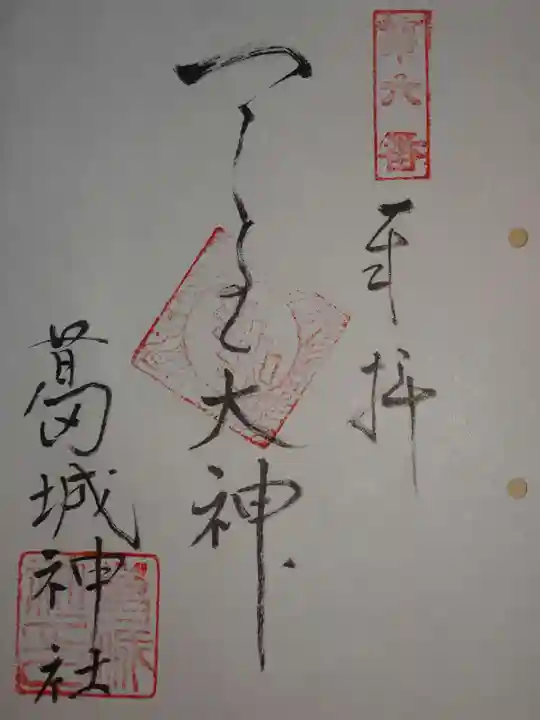 第六番
奉拝
一言主大神
葛城神社